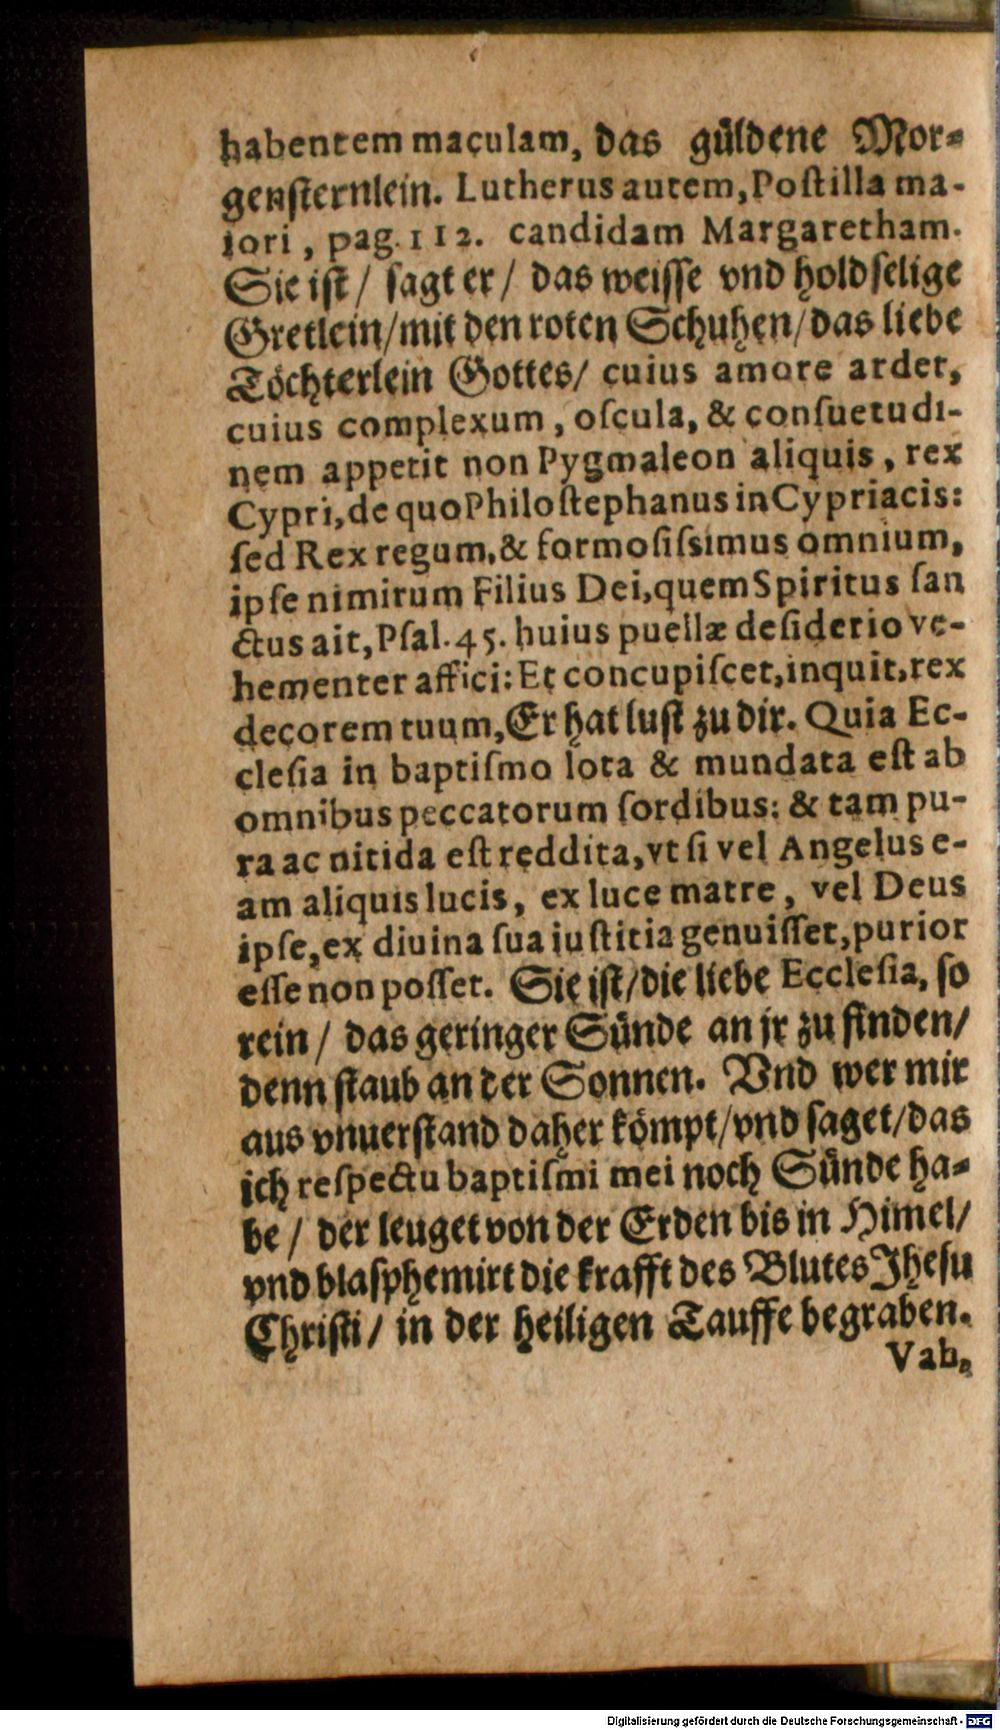 habentem maculam, das güldene Mor-
gensternlein. Lutherus autem, Poſtilla ma-
iori, pag. 112. candidam Margaretham.
Sie iſt / ſagt er / das weiſſe vnd holdſelige
Gretlein/mit den roten Schuhen/das liebe
Töchterlein Gottes/ cuius amore ardet,
cuius complexum, oſcula, & conſuetudi-
nem appetit non Pygmaleon aliquis, rex
Cypri, de quo Philoſtephanus in Cypriacis:
ſed Rex regum, & formoſiſsimus omnium,
ipſe nimirum Filius Dei, quem Spiritus ſan
ctus ait, Pſal. 45. huius puellæ deſiderio ve-
hementer affici: Et concupiſcet, inquit, rex
decorem tuum, Er hat luſt zu dir. Quia Ec-
cleſia in baptiſmo lota & mundata eſt ab
omnibus peccatorum ſordibus: & tam pu-
ra ac nitida eſt reddita, vt ſi vel Angelus e-
am aliquis lucis, ex luce matre, vel Deus
ipſe, ex diuina ſua iuſtitia genuiſſet, purior
eſſe non poſſet. Sie iſt/die liebe Eccleſia, ſo
rein / das geringer Sünde an jr zu finden/
denn ſtaub an der Sonnen. Vnd wer mir
aus vnuerſtand daher kömpt/vnd ſaget/das
ich reſpectu baptiſmi mei noch Sünde ha-
be / der leuget von der Erden bis in Himel/
vnd blaſphemirt die krafft des Blutes Jheſu
Chriſti / in der heiligen Tauffe begraben.
Vah,
Digitalisierung gefördert durch die Deutsche Forschungsgemeinschaft - DFG